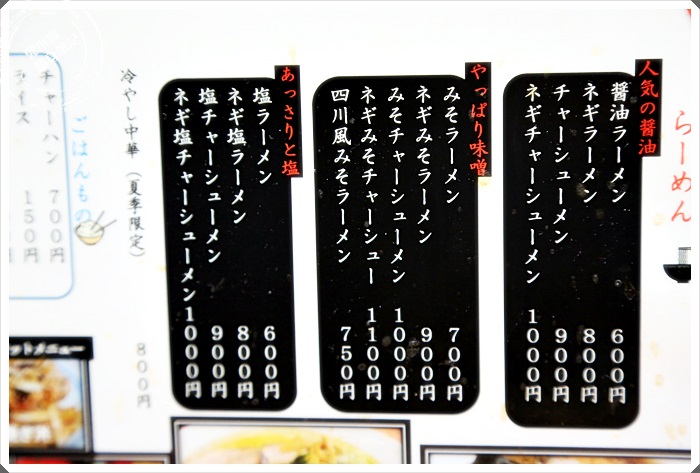 らーめん
人気の醤油
醤油ラーメン 600円
ネギラーメン 800円
チャーシューメン 900円
ネギチャーシューメン 1000円
やっぱり味噌
みそラーメン 700円
ネギみそラーメン 900円
みそチャーシューメン 1000円
ネギみそチャーシュー 1100円
四川風みそラーメン 750円
あっさりと塩
塩ラーメン 600円
ネギ塩ラーメン 800円
塩チャーシューメン 900円
ネギ塩チャーシューメン 1000円
冷やし中華(夏季限定) 800円
ごはんもの
チャーハン 700円
ライス 150円
ットメニュー